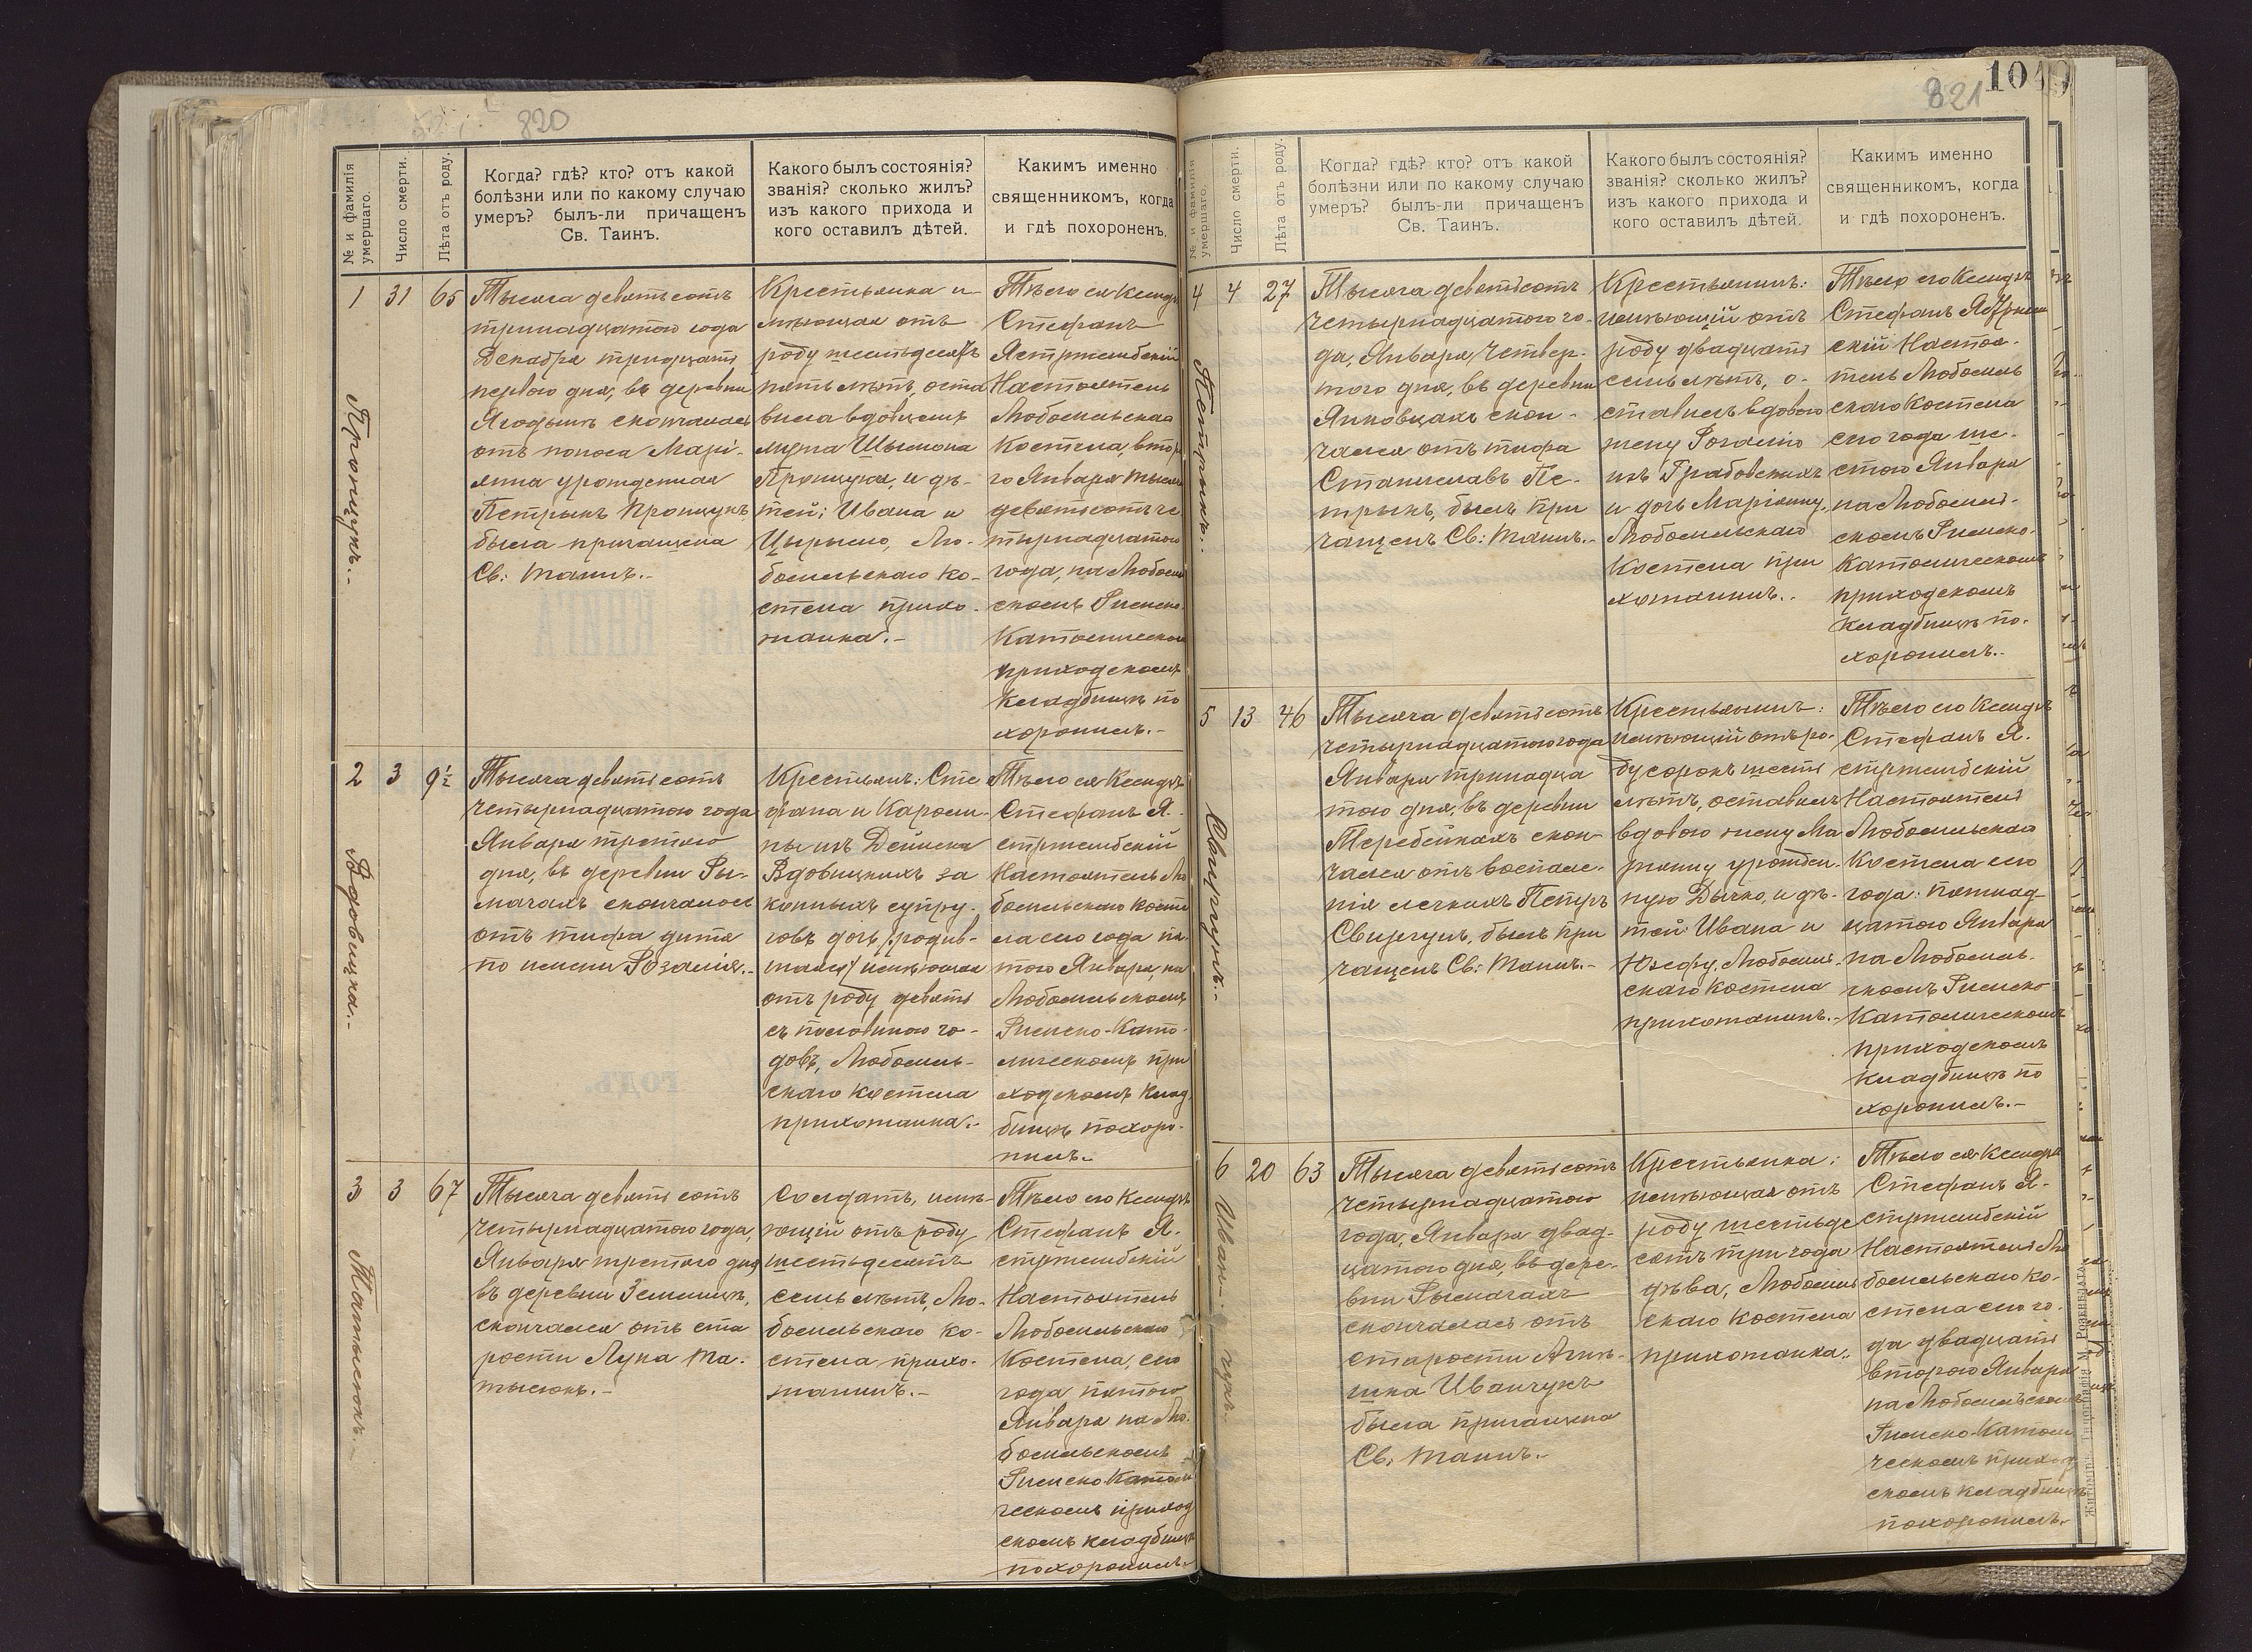 820
№ и фамилія умершаго.
Число смерти.
Лѣта отъ роду.
Когда? гдѣ? кто? отъ какой
болѣзни или по какому случаю
умеръ? былъ-ли причащенъ
Св. Таинъ.
Какого былъ состоянія?
званія? сколько жилъ?
изъ какого прихода и
кого оставилъ дѣтей.
Какимъ именно
священникомъ, когда
и гдѣ похороненъ.
1
31
65
Пронщукъ.-
Тысяча девятьсотъ
тринадцатого года
Декабря тридцать
первого дня, въ деревни
Ягодынѣ скончалась
отъ поноса Марі-
янна урожденная
Петрыкъ Пронщукъ
была причащена
Св: Таинъ.-
Крестьянка и
мѣющая отъ
роду шестьдесятъ
пять лѣтъ, оста
вила вдовцемъ
мужа Шымона
Пронщука, и дѣ-
тей: Ивана и
Цырылю, Лю-
бомльскаго ко-
стела прихо-
жанка.-
Тѣло ея Ксендзъ
Стефанъ
Ястржембскій
Настоятель
Любомльскаго
Костела, второ
го Января тысяча
девятьсотъ че
тырнадцатого
года, на Любомль
скомъ Римско-
Католическомъ
приходскомъ
кладбищѣ по
хоронилъ.-
2
3
9½
Вдовицка.-
Тысяча девятьсотъ
четырнадцатого года
Января третьего
дня, въ деревни Ры-
мачахъ скончалось
отъ тифа дитя
по имени Розалія.-
Крестьянъ: Сте
фана и Кароли-
ны изъ Дейнека
Вдовицкихъ за
конныхъ супру-
говъ дочь, родив-
шаяся/ имѣющая
отъ роду девять
съ половиною го-
довъ, Любомль-
скаго костела
прихожанка.-
Тѣло ея Ксендзъ
Стефанъ Я-
стржембскій
Настоятель Лю
бомльскаго Косте
ла сего года пя-
того Января, на
Любомльскомъ
Римско-Като-
лическомъ при
ходскомъ клад
бищѣ похоро-
нилъ.-
3
3
67
Матысюкъ.-
Тысяча девятьсотъ
четырнадцатого года,
Января третьего дня
въ деревни Землицѣ,
скончался отъ ста
рости Лука Ма-
тысюкъ.-
Солдатъ, имѣ-
ющій отъ роду
шестьдесятъ
семь лѣтъ, Лю-
бомльскаго ко-
стела прихо-
жанинъ.-
Тѣло его Ксендзъ
Стефанъ Я-
стржембскій
Настоятель
Любомльскаго
Костела, сего
года пятого
Января на Лю-
бомльскомъ
Римско Католи
ческомъ приход
скомъ кладбищѣ
похоронилъ.-
821
1049
№ и фамилія умершаго.
Число смерти.
Лѣта отъ роду.
Когда? гдѣ? кто? отъ какой
болѣзни или по какому случаю
умеръ? былъ-ли причащенъ
Св. Таинъ.
Какого былъ состоянія?
званія? сколько жилъ?
изъ какого прихода и
кого оставилъ дѣтей.
Какимъ именно
священникомъ, когда
и гдѣ похороненъ.
4
4
27
Петрыкъ.-
Тысяча девятьсотъ
четырнадцатого го-
да, Января четвер-
того дня, въ деревни
Янковцахъ скон-
чался отъ тифа
Станиславъ Пе-
трыкъ, былъ при
чащенъ Св: Таинъ.-
Крестьянинъ:
имѣющій отъ
роду двадцать
семь лѣтъ, о-
ставилъ вдовою
жену Розалію
изъ Грабовскихъ
и дочь Маріянну,
Любомльскаго
Костела при
хожанинъ.-
Тѣло его Ксендзъ
Стефанъ
скій Настоя-
тель Любомль
скаго Костела
сего года ше-
стого Января
на Любомль-
скомъ Римско-
Католическомъ
приходскомъ
кладбищѣ по-
хоронилъ.-
5
13
46
Свиргунъ.-
Тысяча девятьсотъ
четырнадцатого года
Января тринадца
того дня, въ деревни
Теребейкахъ скон-
чался отъ воспале-
нія легкихъ Петръ
Свиргунъ, былъ при
чащенъ Св: Таинъ.-
Крестьянинъ:
имѣющій отъ ро-
ду сорокъ шесть
лѣтъ, оставилъ
вдовою жену Ма
рянну урожден-
ную Дычко, и дѣ-
тей: Ивана и
Юзефу, Любомль-
скаго костела
прихожанинъ.-
Тѣло его Ксендзъ
Стефанъ Я-
стржембскій
Настоятель
Любомльскаго
Костела сего
года: пятнад-
цатого Января
на Любомль-
скомъ Римско
Католическомъ
приходскомъ
кладбищѣ по
хоронилъ.-
6
20
63
Иван- чукъ.
Тысяча девятьсотъ
четырнадцатого
года, Января двад-
цатого дня, въ дере-
вни Рымачахъ
скончалась отъ
старости Агнѣ-
шка Иванчукъ
была причащена
Св: Таинъ.-
Крестьянка:
имѣющая отъ
роду шестьде
сятъ три года
дѣва, Любомль
скаго костела
прихожанка.-
Тѣло ея Ксендзъ
Стефанъ Я-
стржембскій
Настоятель Лю
бомльскаго ко-
стела сего го-
да двадцать
второго Января
на Любомльскомъ
Римско-Католи
ческомъ приход
скомъ кладбищѣ
похоронилъ.-